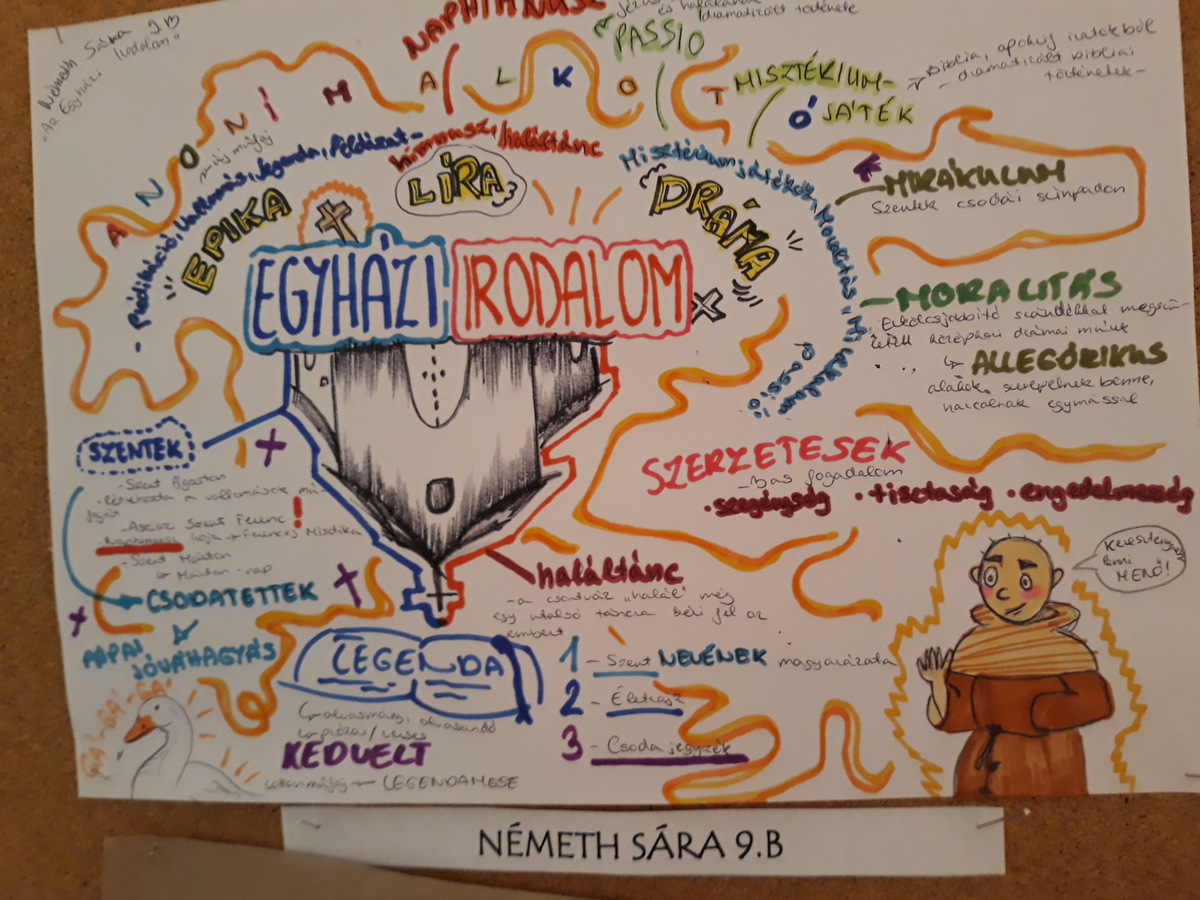 Németh Sára 9.B
Irodalom
"Az Egyházi
NAPHIMNUSZ
és halálának
dramatizált története
PASSIÓ
MISZTÉRIUM-
JÁTÉK
Biblia, apokrif iratokból
dramatizált bibliai
történetek-
ANONIM ALKOTÓ
új műfaj
- Prédikáció, Vallomás, legenda, példázat-
himnusz, haláltánc
Misztériumjátékok, Moralitás, Mirákulum
Passió
EPIKA
LÍRA
DRÁMA
MIRÁKULUM
Szentek csodái színpadon
EGYHÁZI
IRODALOM
-MORALITÁS
Erkölcsjobbító szándékkal
középkori drámai műfaj
ALLEGÓRIKUS
alakok szerepelnek benne,
harcolnak egymással
SZENTEK
- Szent Ágoston
létrehozta a vallomások mű-
faját
- Assisi Szent Ferenc!
írója → Ferences Misztika
- Szent Márton
↳ Márton-nap
SZERZETESEK
- fogadalom
• szegénység • tisztaság • engedelmesség
CSODATETTEK
PÁPAI
JÓVÁHAGYÁS
haláltánc
- a csontváz "halál" még
egy utolsó táncra kéri fel az
embert
Kereszténynek
lenni
MENŐ!
LEGENDA
1 - Szent NEVÉNEK magyarázata
2 - Életrajz
3 - Csoda jegyzék
olvasmány, olvasandó
prózai/verses
KEDVELT
LEGENDAMESE
GÁ-GÁ-GÁ
NÉMETH SÁRA 9.B